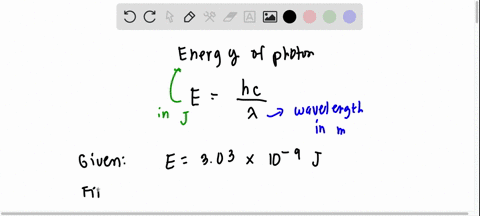 Energy of photon
in J E = hc / λ → wavelength in m
Given: E = 3.03 × 10⁻⁹ J